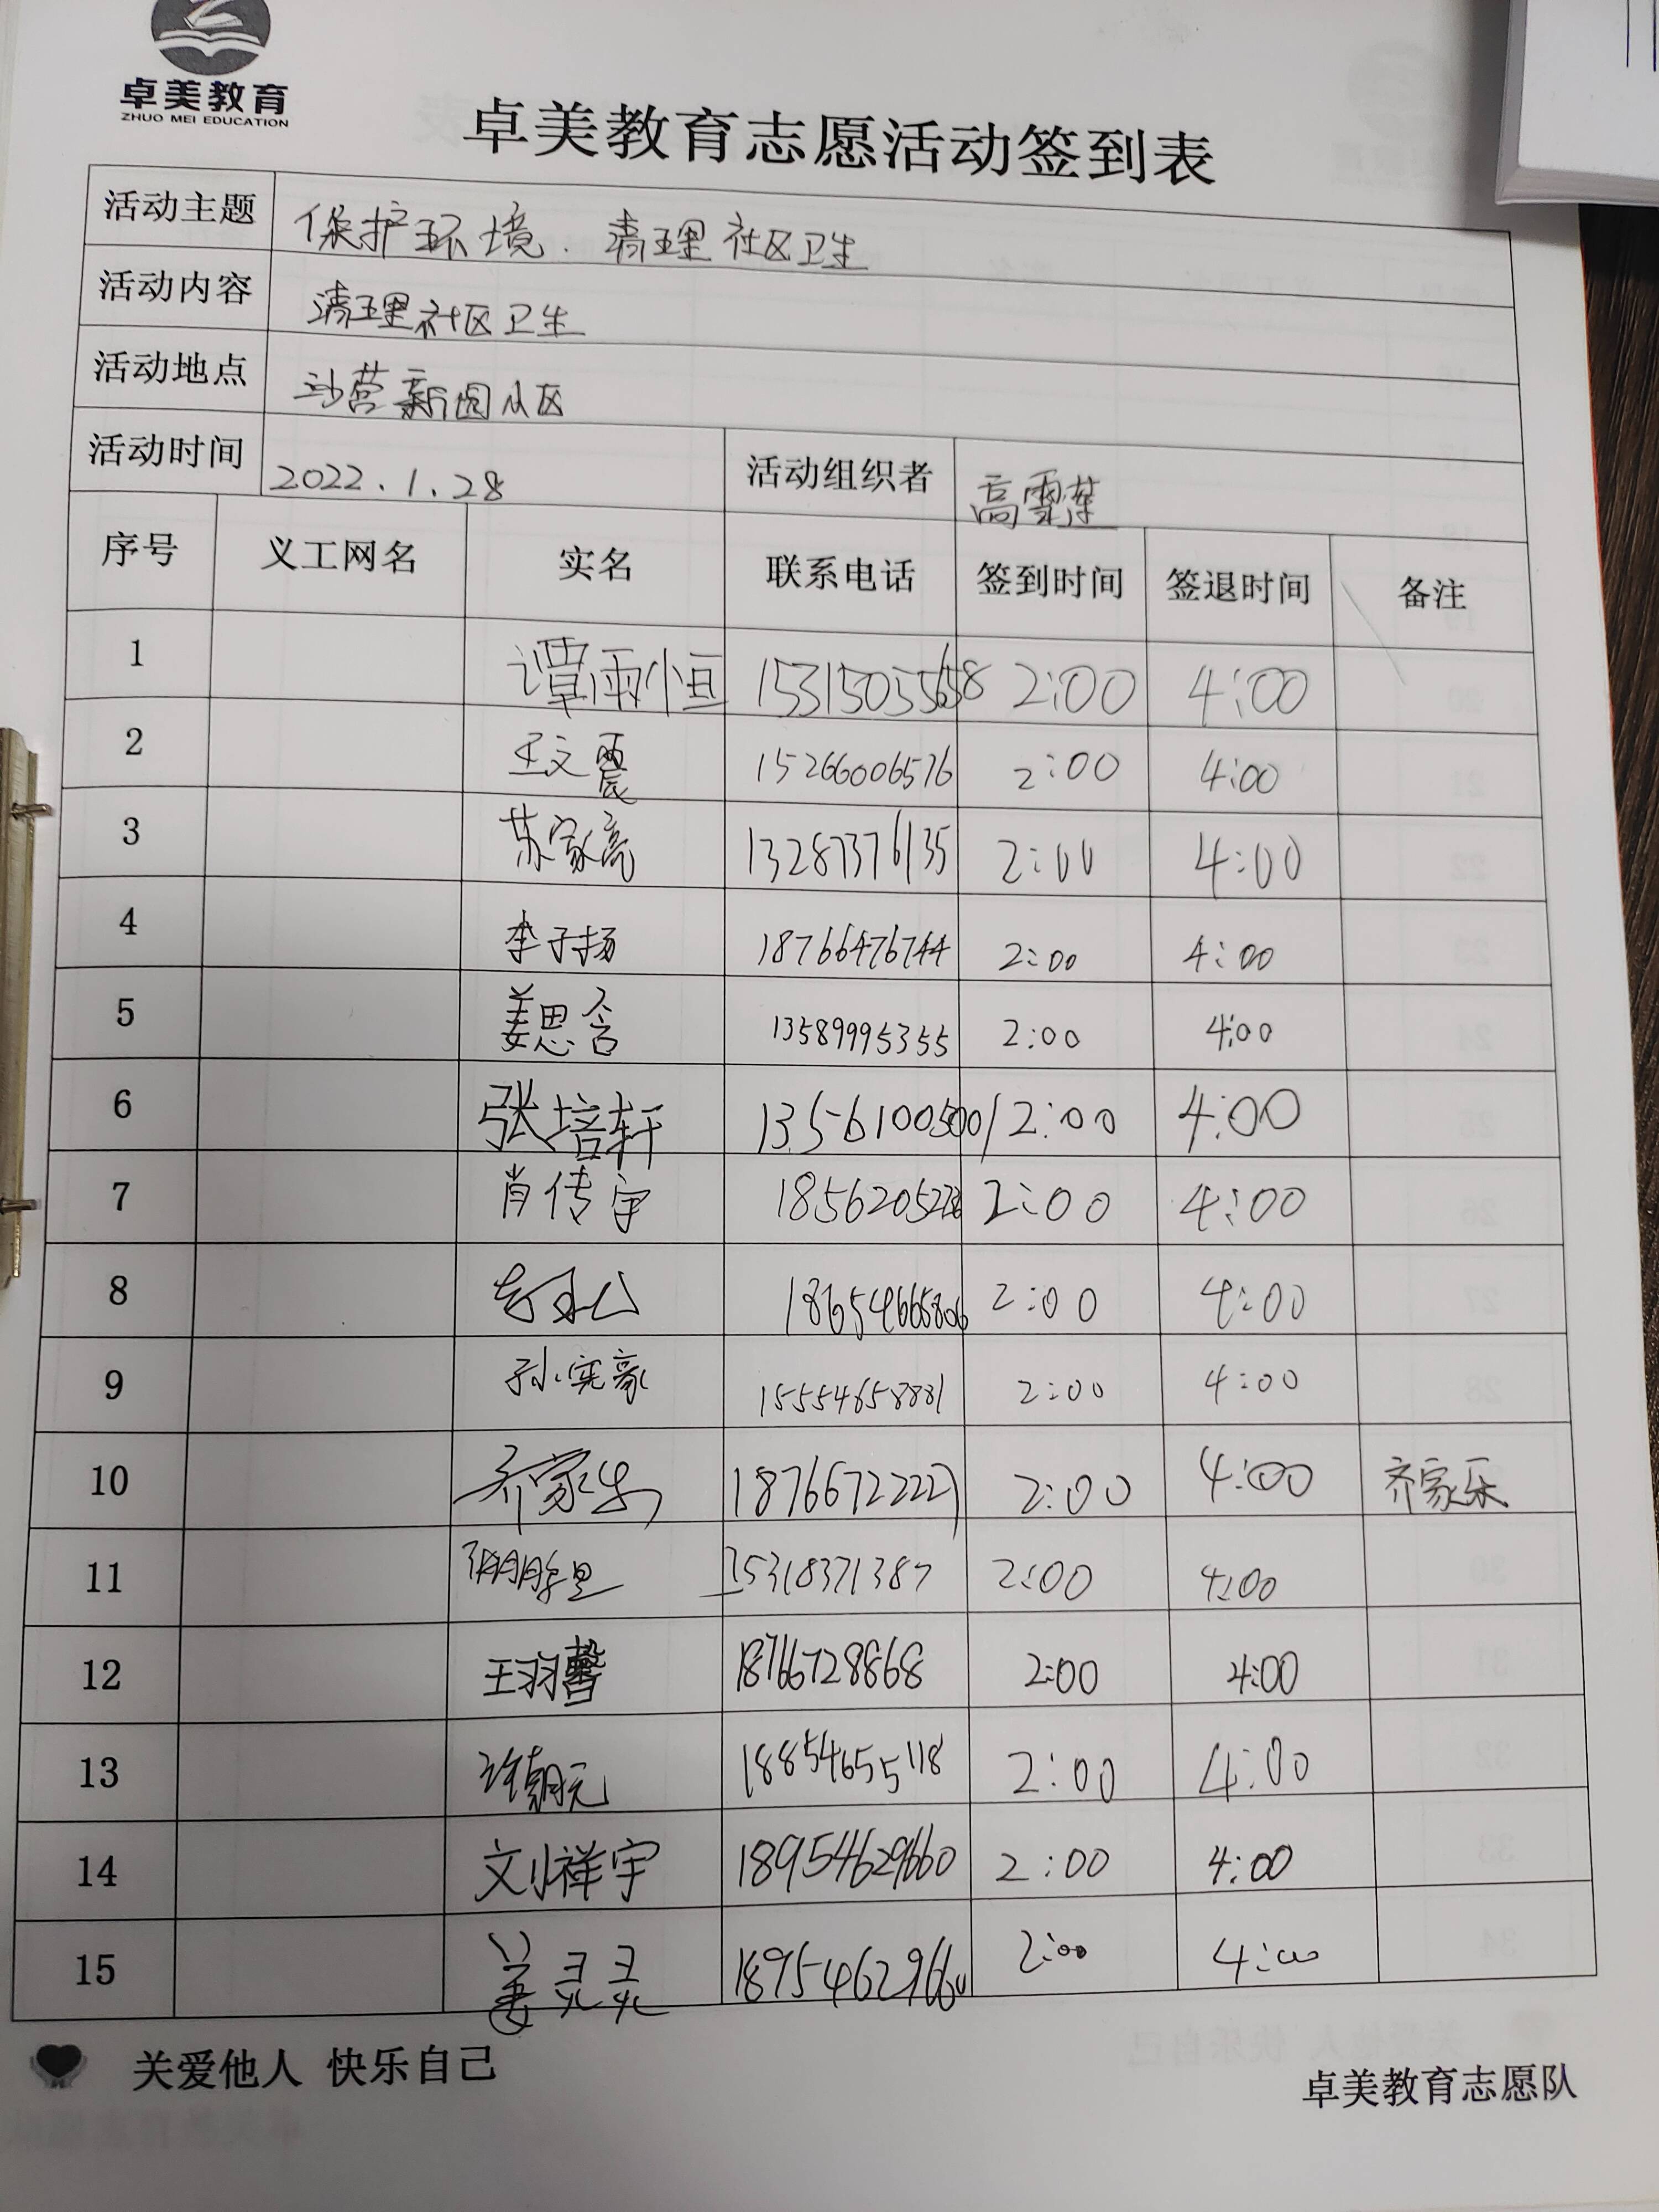 卓美教育
ZHUO MEI EDUCATION
卓美教育志愿活动签到表
活动主题 保护环境. 清理社区卫生
活动内容 清理社区卫生
活动地点 沙营新园小区
活动时间 2022.1.28 活动组织者 高雪莲
序号 义工网名 实名 联系电话 签到时间 签退时间 备注
1 谭雨恒 15315055658 2:00 4:00
2 王文震 15266006576 2:00 4:00
3 苏家亮 13287376135 2:00 4:00
4 李子扬 18766476744 2:00 4:00
5 姜思含 13589995355 2:00 4:00
6 张培轩 13561005001 2:00 4:00
7 肖传宇 2:00 4:00
8 18654665806 2:00 4:00
9 孙宪豪 15554658881 2:00 4:00
10 齐家乐 18766722227 2:00 4:00 齐家乐
11 15318371387 2:00 4:00
12 王羽馨 18766728868 2:00 4:00
13 许朝元 18854655118 2:00 4:00
14 刘祥宇 18954629660 2:00 4:00
15 姜灵灵 18954629660 2:00 4:00
关爱他人 快乐自己
卓美教育志愿队